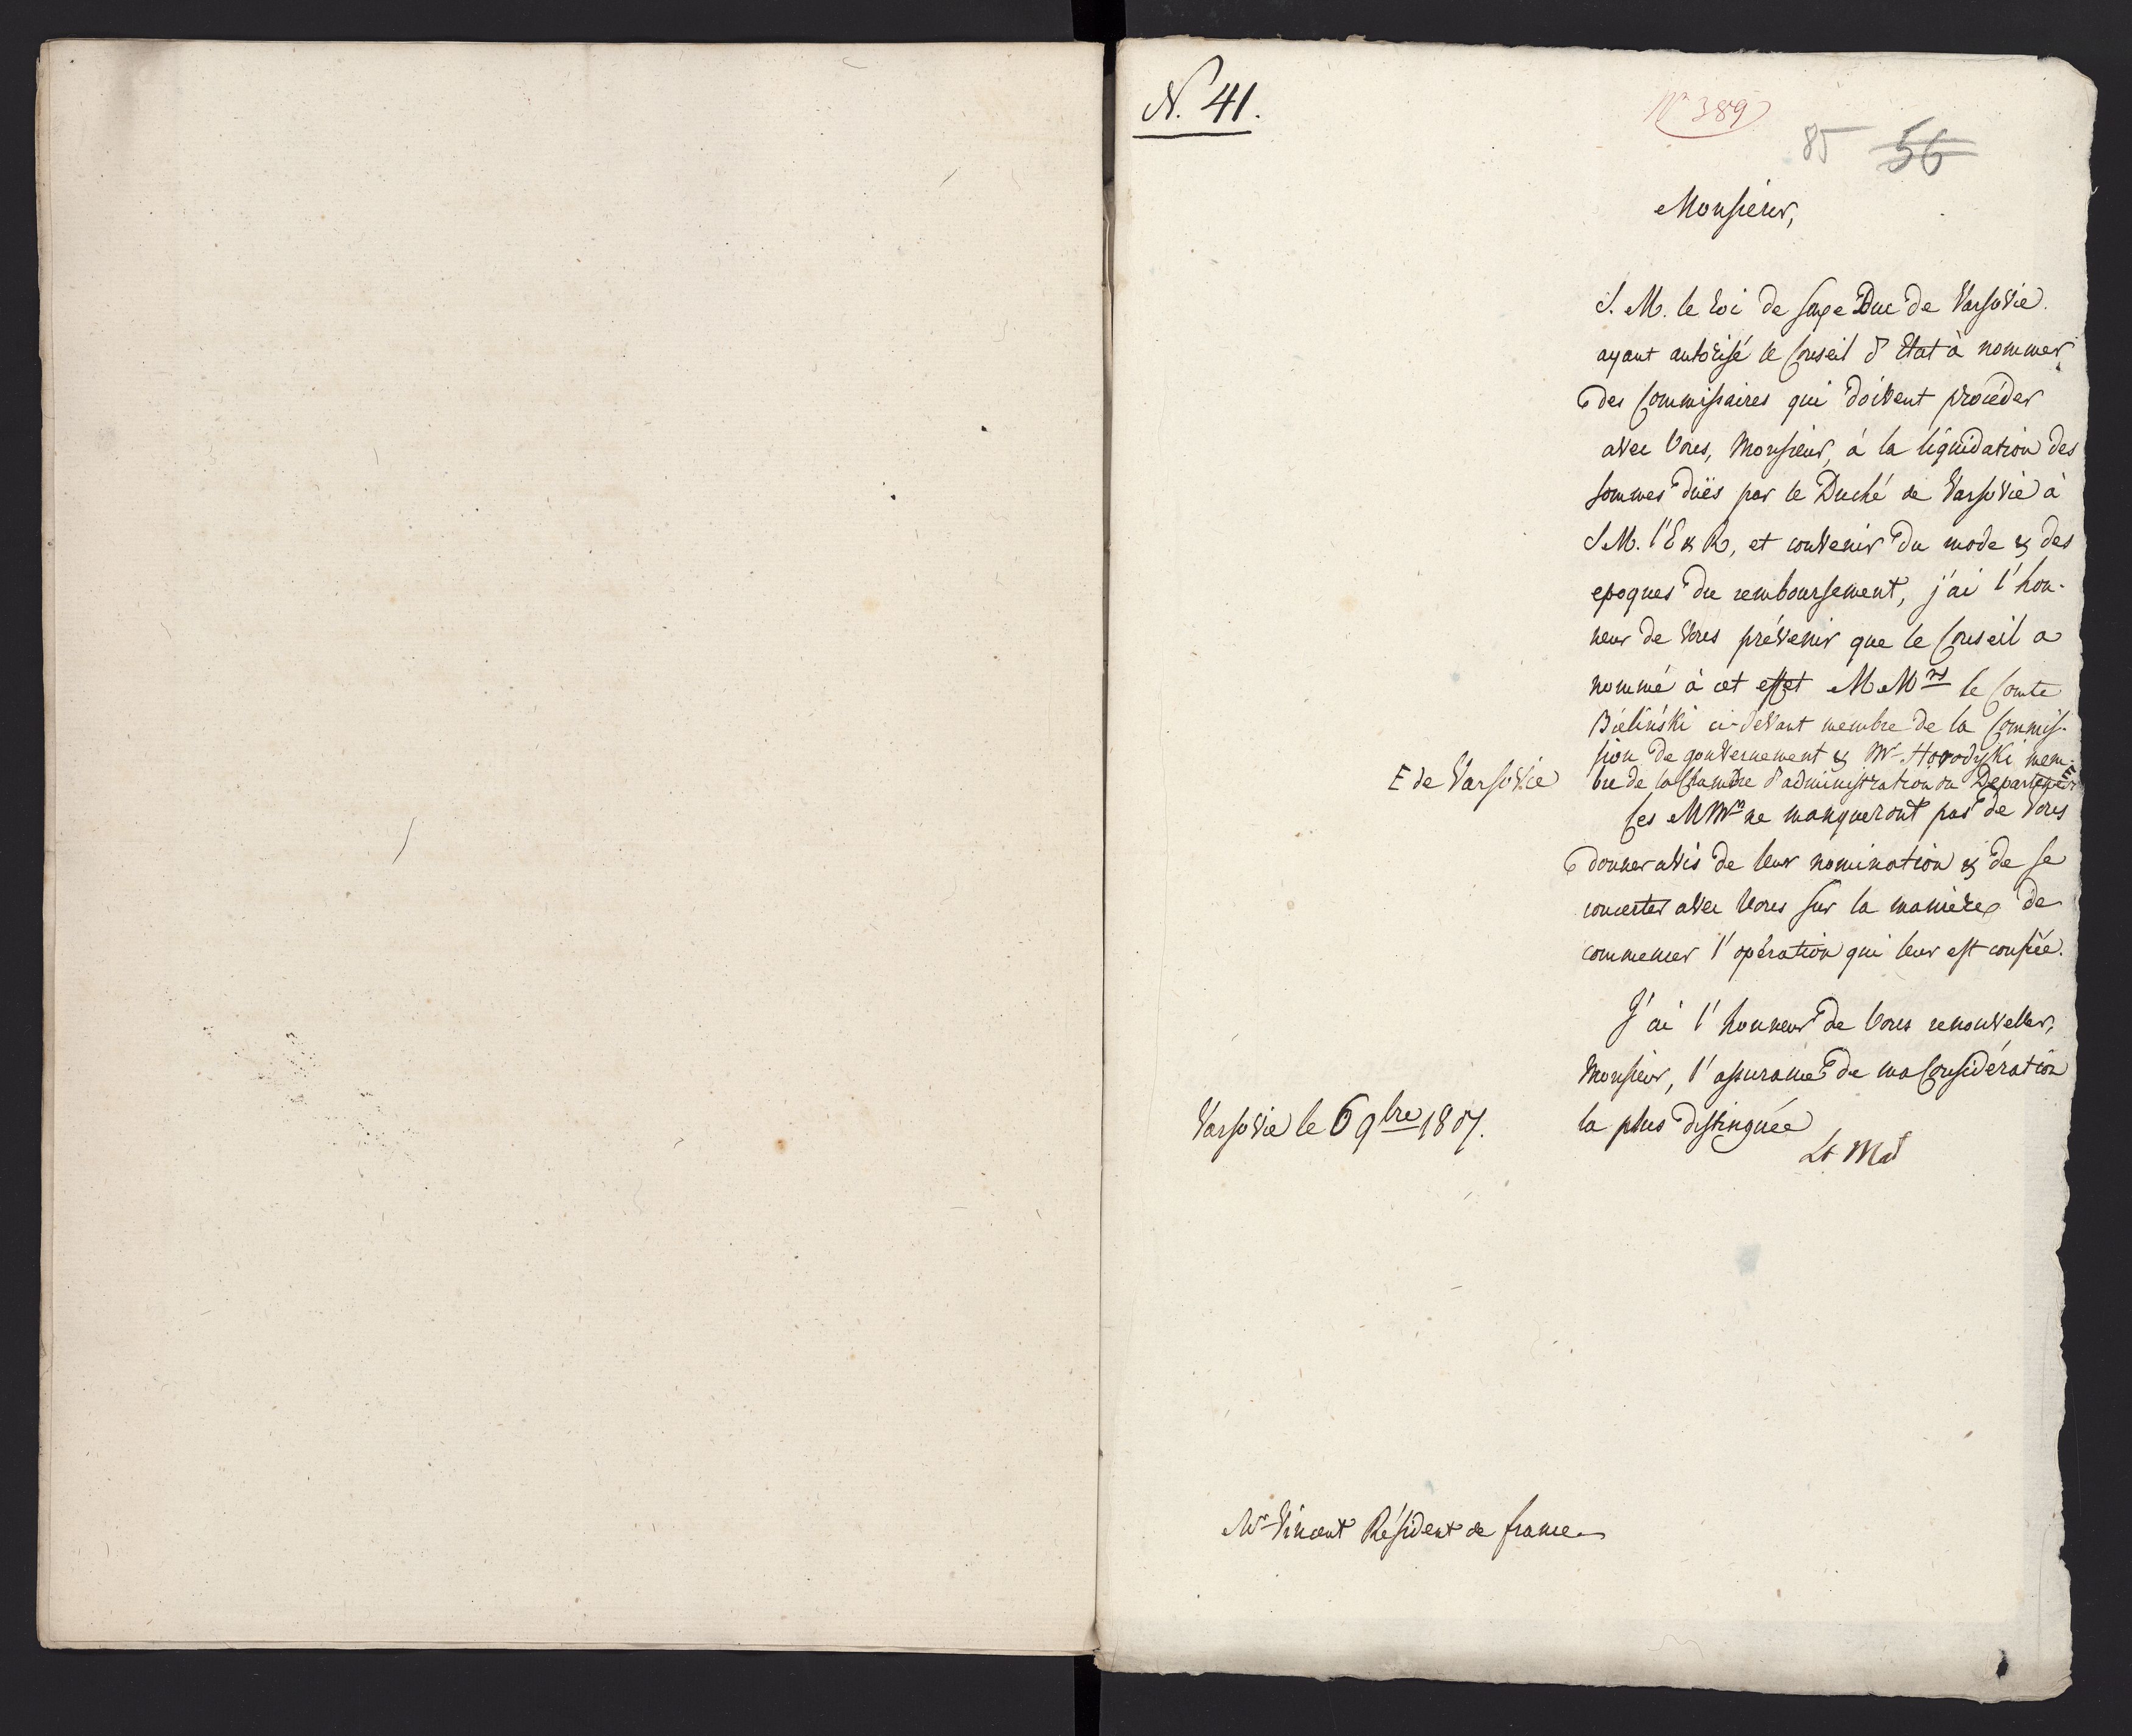 N. 41.
No 389
85 56
Monsieur,
S. M. le Roi de Saxe Duc de Varsovie
ayant autorisé le Conseil d'Etat à nommer
des Commissaires qui doivent procéder
avec Vous, Monsieur, à la liquidation des
sommes duës par le Duché de Varsovie à
S M. l'E & R, et convenir du mode & des
epoques du remboursement, j'ai l'hon-
neur de Vous prévenir que le Conseil a
nommé à cet effet M Mrs le Comte
Bieliński ci-devant membre de la Commis-
sion de gouvernement & Mr Horodyski mem-
bre de la Chambre d'administration du Departement
E de Varsovie
Ces M Mrs ne manqueront pas de Vous
donner avis de leur nomination & de se
concerter avec Vous sur la manière de
commencer l'opération qui leur est confiée.
J'ai l'honneur de Vous renouveller,
Monsieur, l'assurance de ma Considération
la plus distinguée
Varsovie le 6 9bre 1807.
Mr Vincent Résident de france